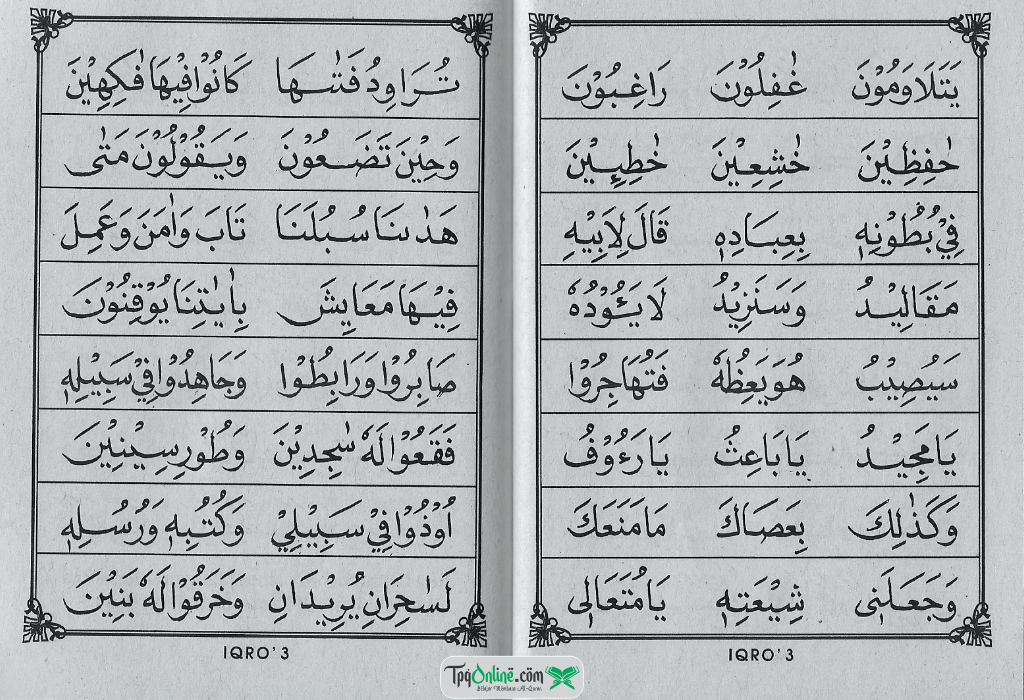 يَتَلَاوَمُوْنَ غٰفِلُوْنَ رَاغِبُوْنَ
حٰفِظِيْنَ خٰشِعِيْنَ خٰطِـِٕيْنَ
فِيْ بُطُوْنِهٖ بِعِبَادِهٖ قَالَ لِاَبِيْهِ
مَقَالِيْدُ وَسَنَزِيْدُ لَا يَئُوْدُهٗ
سَيُصِيْبُ هُوَ يَعِظُهٗ فَتُهَاجِرُوْا
يَا مَجِيْدُ يَا بَاعِثُ يَا رَءُوْفُ
وَكَذٰلِكَ بِعَصَاكَ مَا مَنَعَكَ
وَجَعَلَنٰى شِيْعَتِهٖ يَا مُتَعَالِى
IQRO'3
تُرَاوِدُ فَتٰىهَا كَانُوْا فِيْهَا فٰكِهِيْنَ
وَحِيْنَ تَضَعُوْنَ وَيَقُوْلُوْنَ مَتٰى
هَدٰىنَا سُبُلَنَا تَابَ وَاٰمَنَ وَعَمِلَ
فِيْهَا مَعَايِشَ بِاٰيٰتِنَا يُوْقِنُوْنَ
صَابِرُوْا وَرَابِطُوْا وَجَاهِدُوْا فِيْ سَبِيْلِهٖ
فَقَعُوْا لَهٗ سٰجِدِيْنَ وَطُوْرِ سِيْنِيْنَ
اُوْذُوْا فِيْ سَبِيْلِيْ وَكُتُبِهٖ وَرُسُلِهٖ
لَسٰحِرَانِ يُرِيْدَانِ وَخَرَقُوْا لَهٗ بَنِيْنَ
IQRO'3
TpqOnline.com
Belajar Membaca Al-Quran